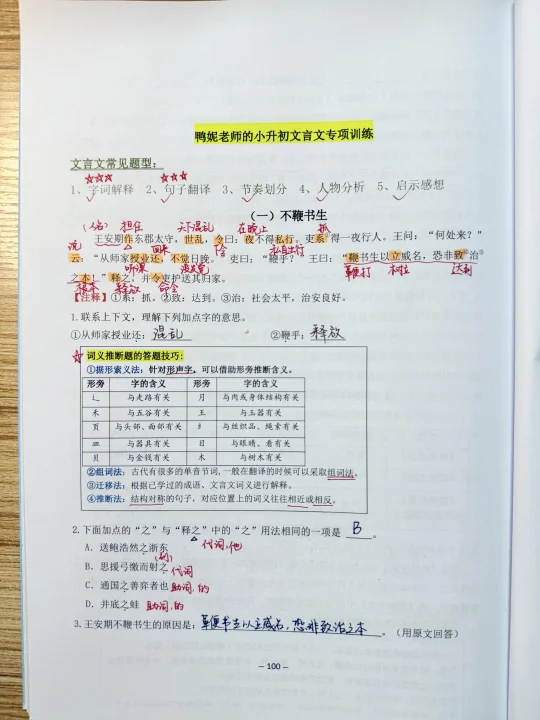 鸭妮老师的小升初文言文专项训练
文言文常见题型:
☆☆☆ ☆☆☆
1、字词解释 2、句子翻译 3、节奏划分 4、人物分析 5、启示感想
(一)不鞭书生
(人名) 担任 天下混乱 在晚上 抓
王安期作东郡太守,世乱,令曰:夜不得私行。吏系①得一夜行人。王问:“何处来?”
说 回来 私自出行
云:“从师家授业还,不觉日晚。”吏曰:“鞭乎?”王曰:“鞭书生以立威名,恐非致②治③
听课 没发觉 鞭打 树立 达到
之本!”释之,并令吏护送其归家。
根本 释放 命令
【注释】①系:抓。②致:达到。③治:社会太平,治安良好。
1.联系上下文,理解下列加点字的意思。
①从师家授业还: 混乱 ②鞭乎: 释放
☆ 词义推断题的答题技巧:
①据形索义法:针对形声字,可以借助形旁推断含义。
形旁 字的含义 形旁 字的含义
辶 与走路有关 月 与肉或身体结构有关
禾 与五谷有关 王 与玉器有关
页 与头部、面部有关 纟 与丝织品、绳索有关
皿 与器具有关 目 与眼睛、看有关
贝 与金钱有关 木 与树木有关
②组词法:古代有很多的单音节词,一般在翻译的时候可以采取组词法。
③迁移法:根据已学过的成语、文言文词义进行解释。
④推断法:结构对称的句子,对应位置上的词义往往相近或相反。
2.下面加点的“之”与“释之”中的“之”用法相同的一项是 B 。
A. 送鲍浩然之浙东 代词,他
B. 思援弓缴而射之 代词
C. 通国之善弈者也 助词,的
D. 井底之蛙 助词,的
3.王安期不鞭书生的原因是: 鞭书生以立威名,恐非致治之本 。(用原文回答)
– 100 –